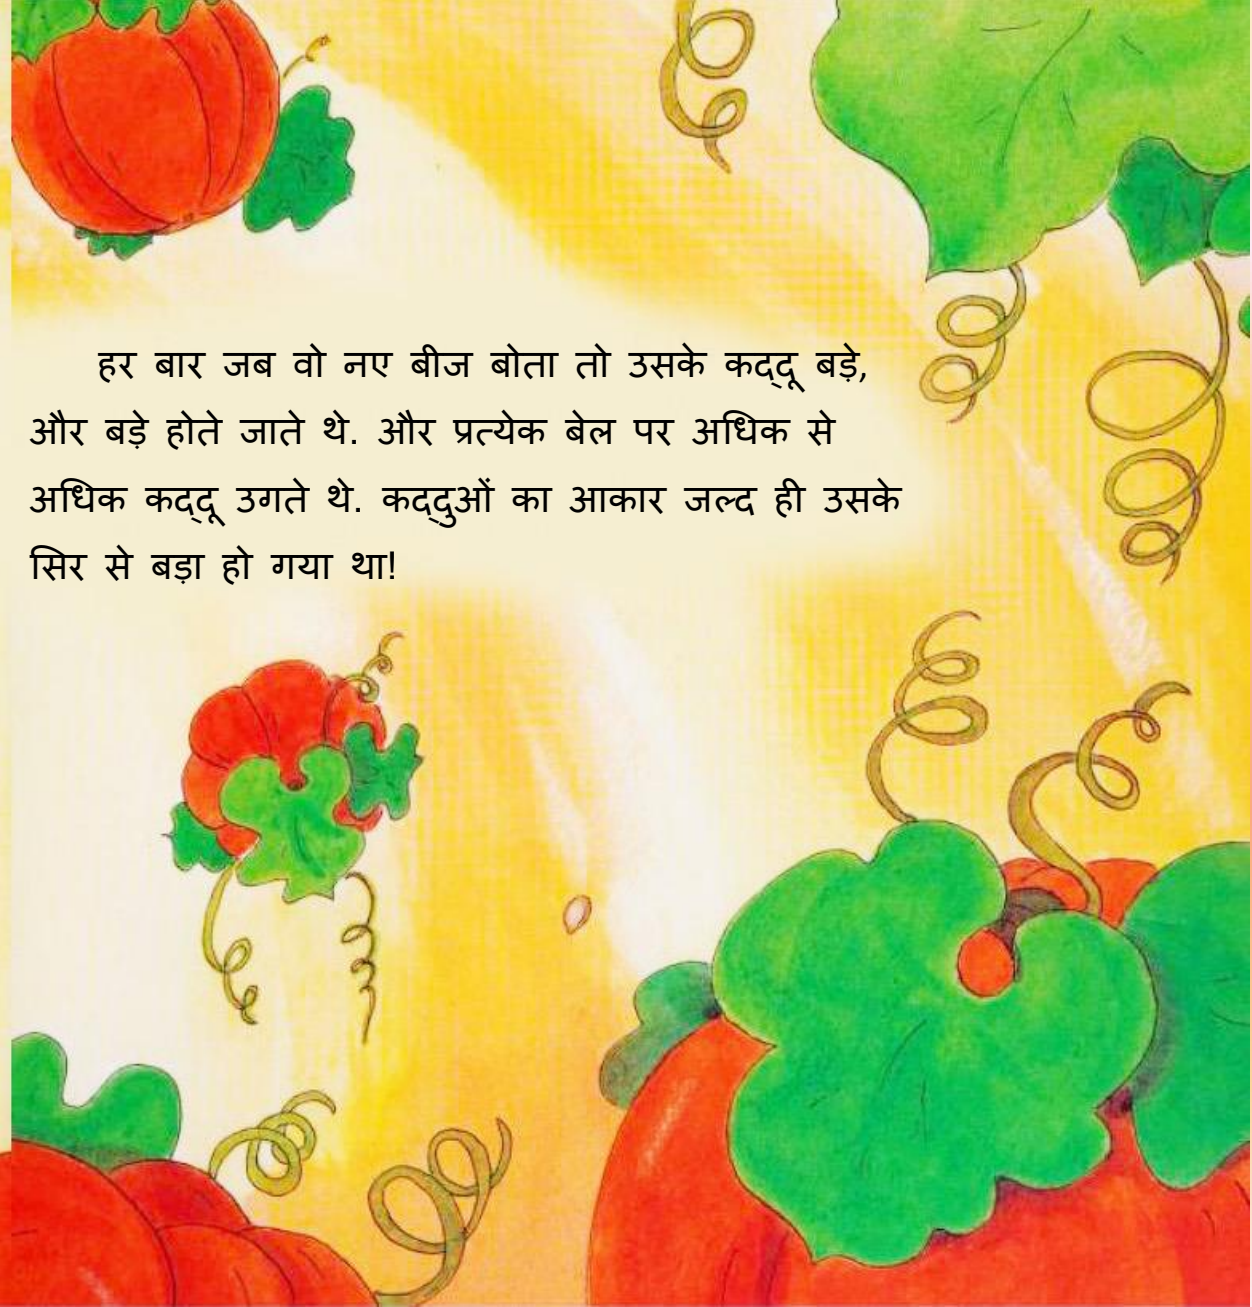 हर बार जब वो नए बीज बोता तो उसके कद्दू बड़े,
और बड़े होते जाते थे. और प्रत्येक बेल पर अधिक से
अधिक कद्दू उगते थे. कद्दुओं का आकार जल्द ही उसके
सिर से बड़ा हो गया था!